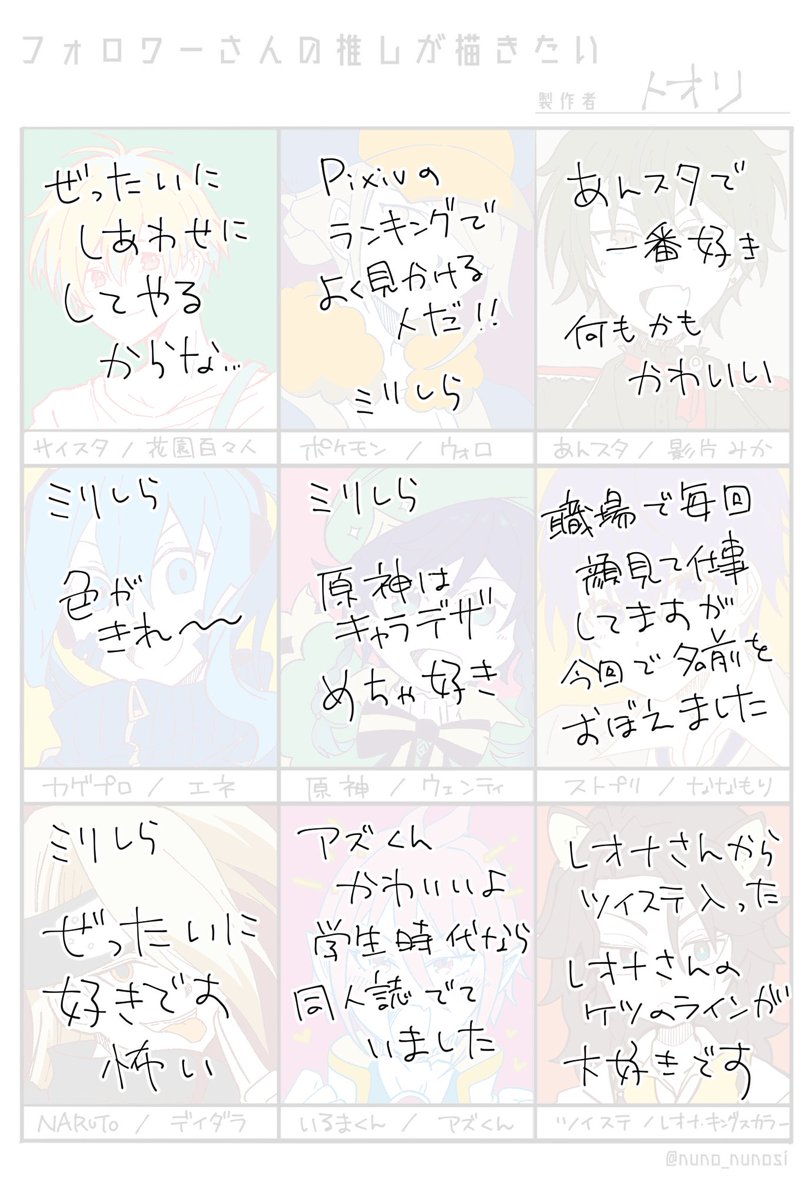 フォロワーさんの推しが描きたい
製作者 トオリ
ぜったいに
しあわせに
してやる
からな…
サイスタ / 花園百々人
Pixivの
ランキングで
よく見かける
人だ!!
ミリしら
ポケモン / ウォロ
あんスタで
一番好き
何もかも
かわいい
あんスタ / 影片みか
ミリしら
色が
きれ〜〜
カゲプロ / エネ
ミリしら
原神は
キャラデザ
めちゃ好き
原神 / ウェンティ
職場で毎回
顔見て仕事
してますが
今回で名前を
おぼえました
ストプリ / ななもり
ミリしら
ぜったいに
好きです
怖い
NARUTO / デイダラ
アズくん
かわいいよ
学生時代なら
同人誌でて
いました
いるまくん / アズくん
レオナさんから
ツイステ入った
レオナさんの
ケツのラインが
大好きです
ツイステ / レオナ・キングスカラー
@nuno_nunosi